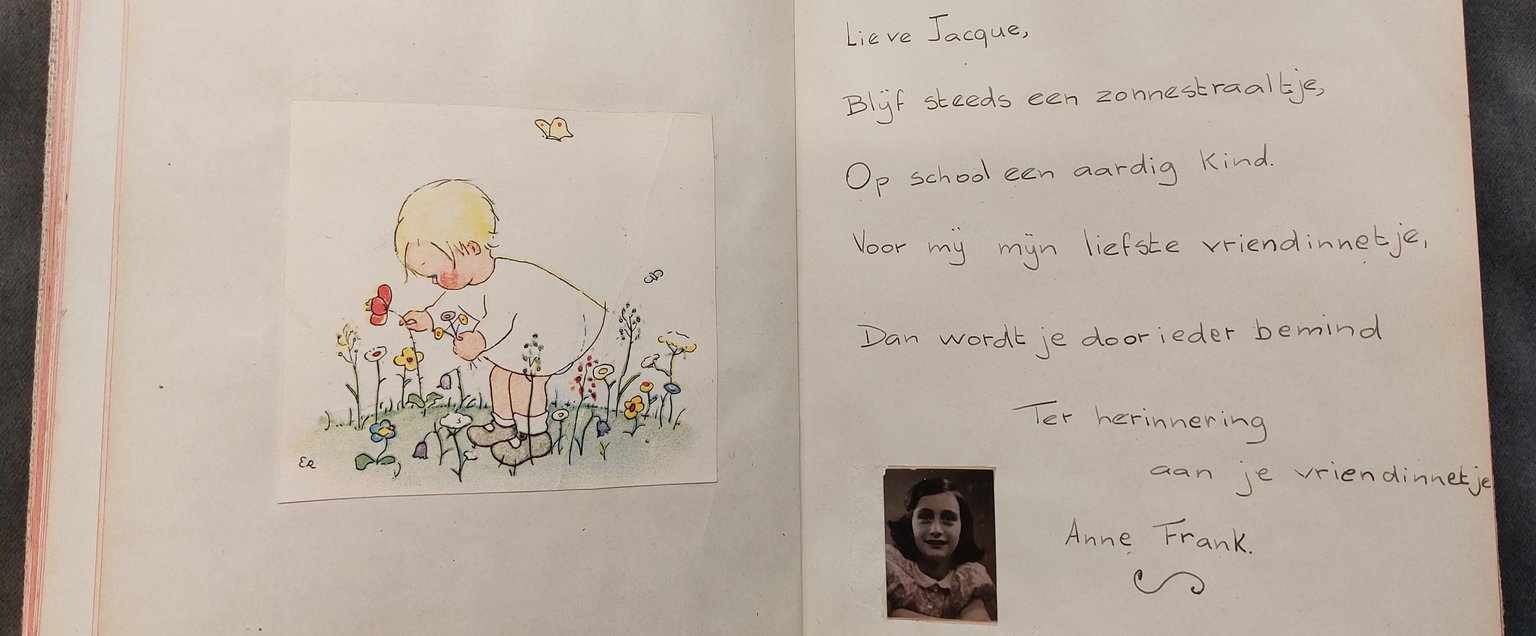 ER
Lieve Jacque,
Blijf steeds een zonnestraaltje,
Op school een aardig Kind.
Voor mij mijn liefste vriendinnetje,
Dan wordt je door ieder bemind
Ter herinnering
aan je vriendinnetje
Anne Frank.